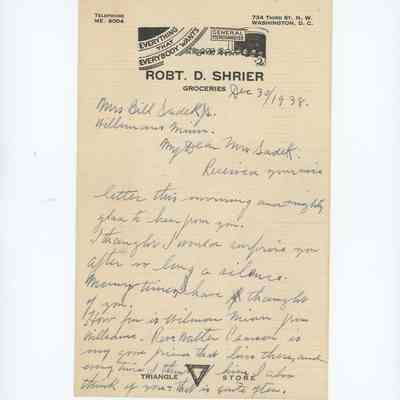 TELEPHONE
ME. 9004
734 THIRD ST. N. W.
WASHINGTON, D. C.
EVERYTHING
THAT
EVERYBODY WANTS
GENERAL
MERCHANDISE
ROBT. D. SHRIER
GROCERIES
Dec 30/1938.
Mrs Bill Sadek Jr.
Minn.
My Dear Mrs Sadek.
Received your nice
letter this morning and mighty
glad to hear from you.
I thought I would surprise you
after so long a silence.
Many times I have thought
of you.
How far is Wilmar Minn from
Williams. Rev Walter is
my good friend that lives there, and
every time I of him I also
think of you - that is quite often.
TRIANGLE
STORE